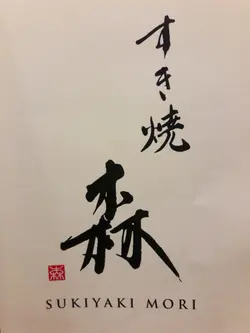 すき焼
森
森
SUKIYAKI MORI